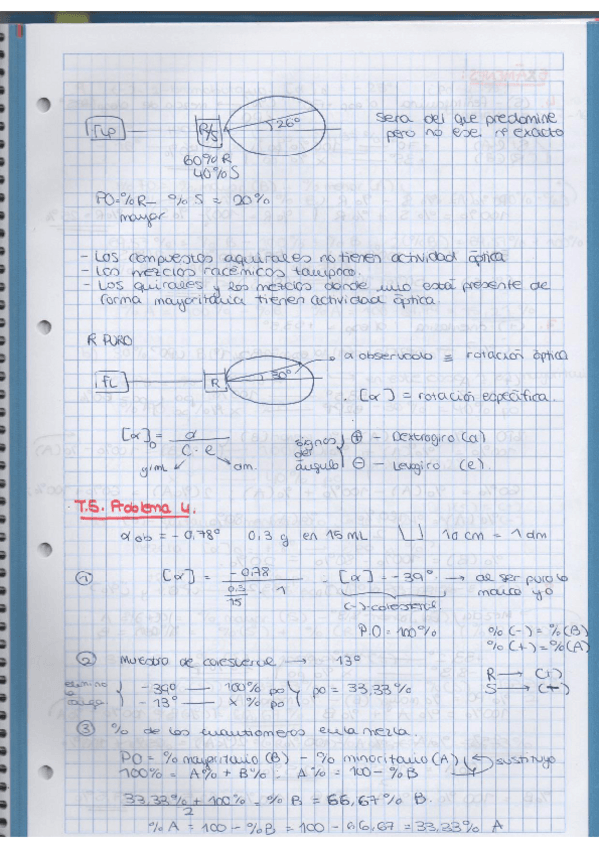 R/S
26º
60% R
40% S
será del que predomine
pero no exacto
PO = % R - % S = 20%
mayor
- Los compuestos aquirales no tienen actividad óptica
- Las mezclas racémicas tampoco.
- Los quirales y las mezclas donde uno está presente de
forma mayoritaria tienen actividad óptica.
R PURO
R
30º
α observado = rotación óptica
[α] = rotación específica.
[α]D = α / C · e
g/mL dm.
signos del ángulo
⊕ - Dextrógiro (d)
⊖ - Levógiro (e).
T.5. Problema 4.
α ob = -0,78º 0,3 g en 15 mL 10 cm = 1 dm
① [α] = -0,78 / 0,3/15 · 1 [α] = -39º → al ser puro lo
marco yo
(-)-colesterol.
P.O = 100%
% (-) = % (B)
% (+) = % (A)
② muestra de colesterol → 13º
R → (-)
S → (+)
-39º — 100% po
-13º — x % po
po = 33,33%
③ % de los enantiómeros en la mezcla.
PO = % mayoritario (B) - % minoritario (A)
sustituyo
100% = A% + B% A% = 100 - % B
33,33% + 100% / 2 % B = 66,67% B.
% A = 100 - % B = 100 - 66,67 = 33,33% A